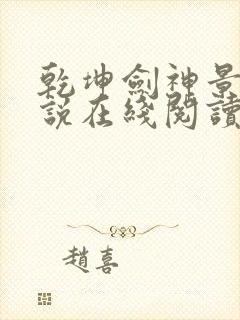 乾坤劍神景
説在綫閱讀
趙喜